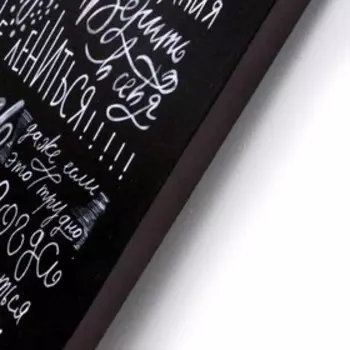 НИЯ
Верить
в себя
ЛЕНИТЬСЯ!!!!!
даже если
это трудно
ться